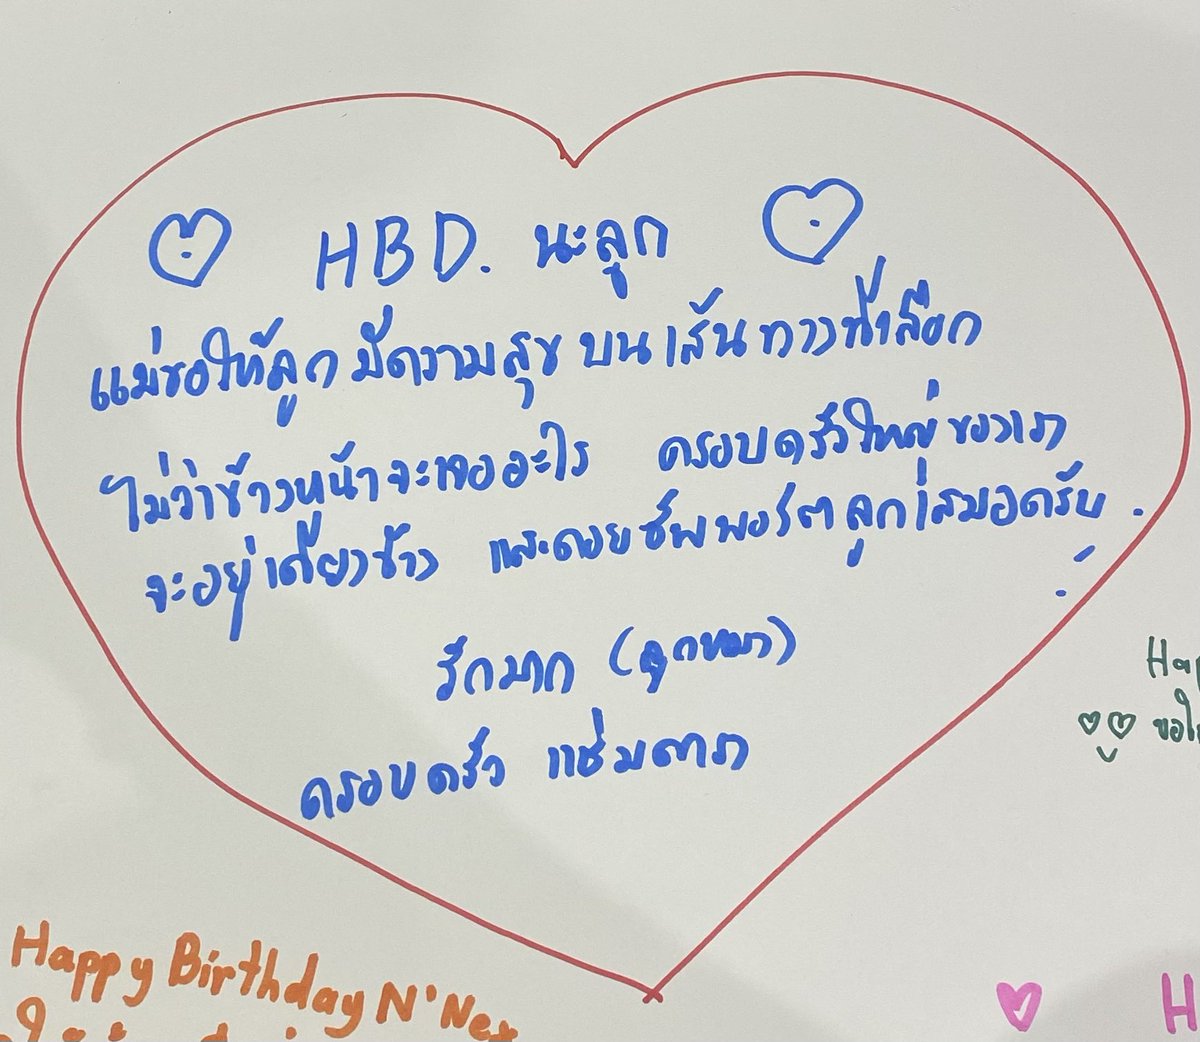 HBD. นะลูก
แม่ขอให้ลูกมีความสุขบนเส้นทางที่เลือก
ไม่ว่าข้างหน้าจะเจออะไร ครอบครัวใหญ่ของเรา
จะอยู่เคียงข้าง และคอยซัพพอร์ตลูกเสมอครับ.
รักมาก (ลูกหมา)
ครอบครัว แช่มตารา
Hap
ขอใ
Happy Birthday N'Net
H